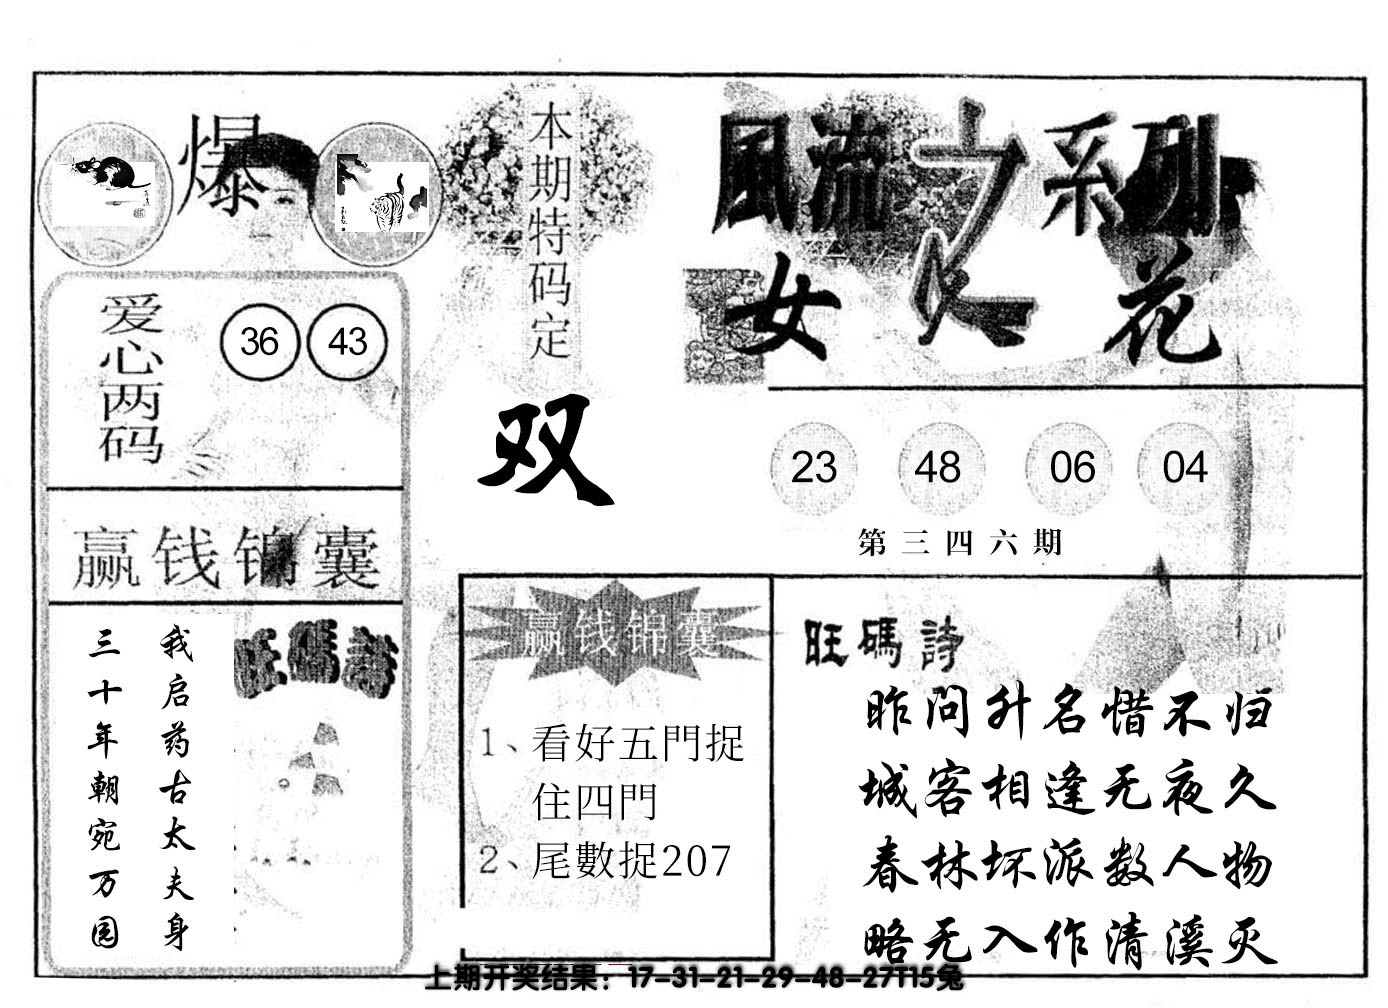 爆
本期特码定
双
風流之系列
女人花
爱心两码
36 43
23 48 06 04
第三四六期
赢钱锦囊
我启药古太夫身
三十年朝宛万园
旺碼詩
赢钱锦囊
1、看好五門捉
住四門
2、尾數捉207
旺碼詩
昨问升名惜不归
城客相逢无夜久
春林坏派数人物
略无入作清溪灭
上期开奖结果：17-31-21-29-48-27T15兔